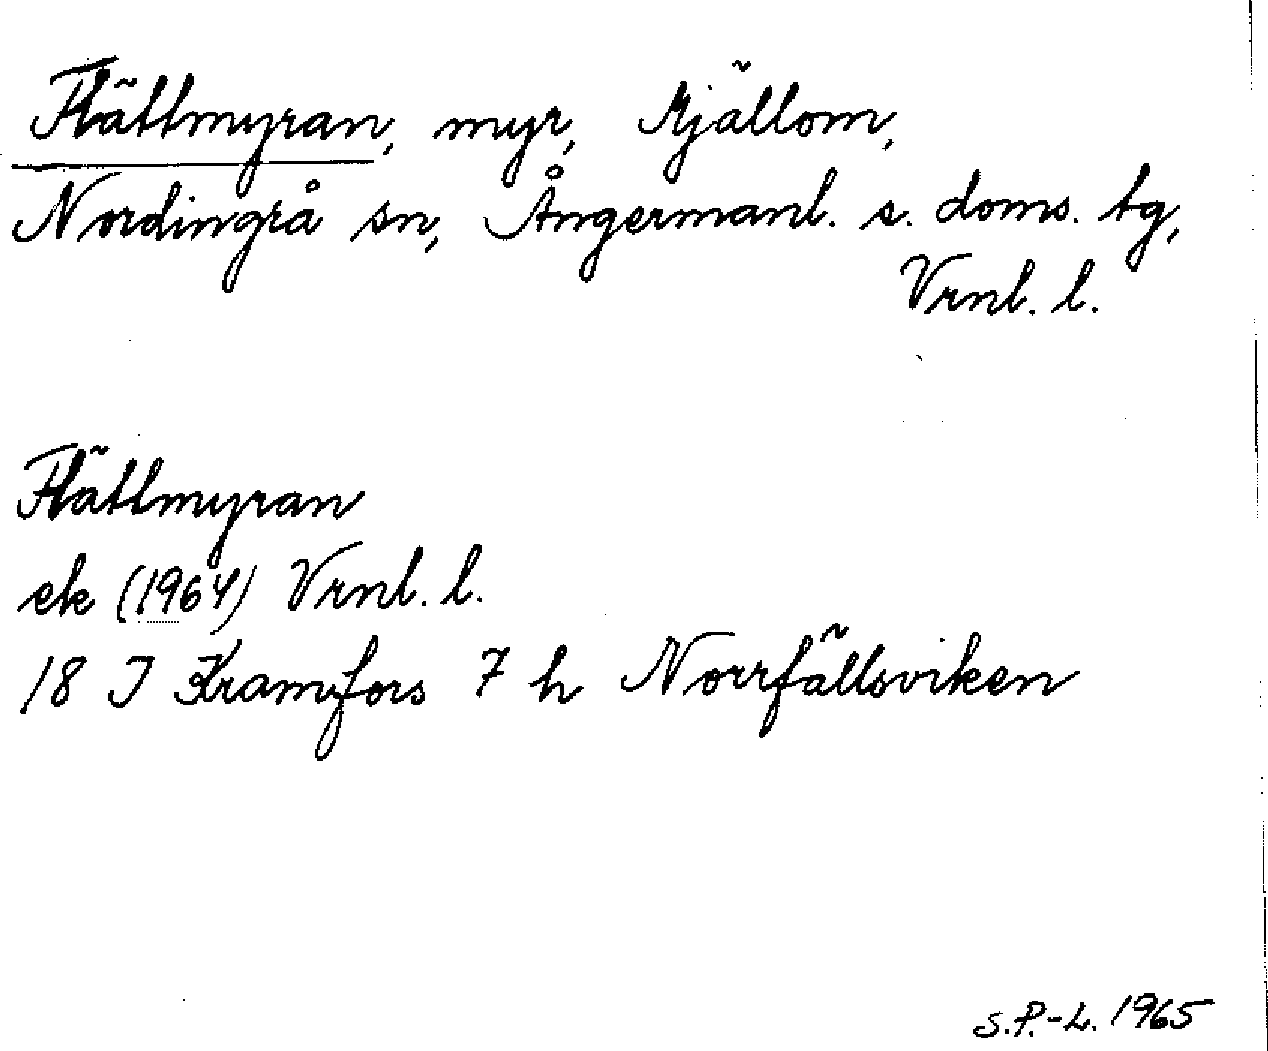 Flättmyran, myr, Mjällom,
Nordingrå sn, Ångermanl. s. doms. tg,
Vrnl. l.
Flättmyran
ek (1964) Vrnl. l.
18 I Kramfors 7 h Norrfällsviken
S.P.-L. 1965